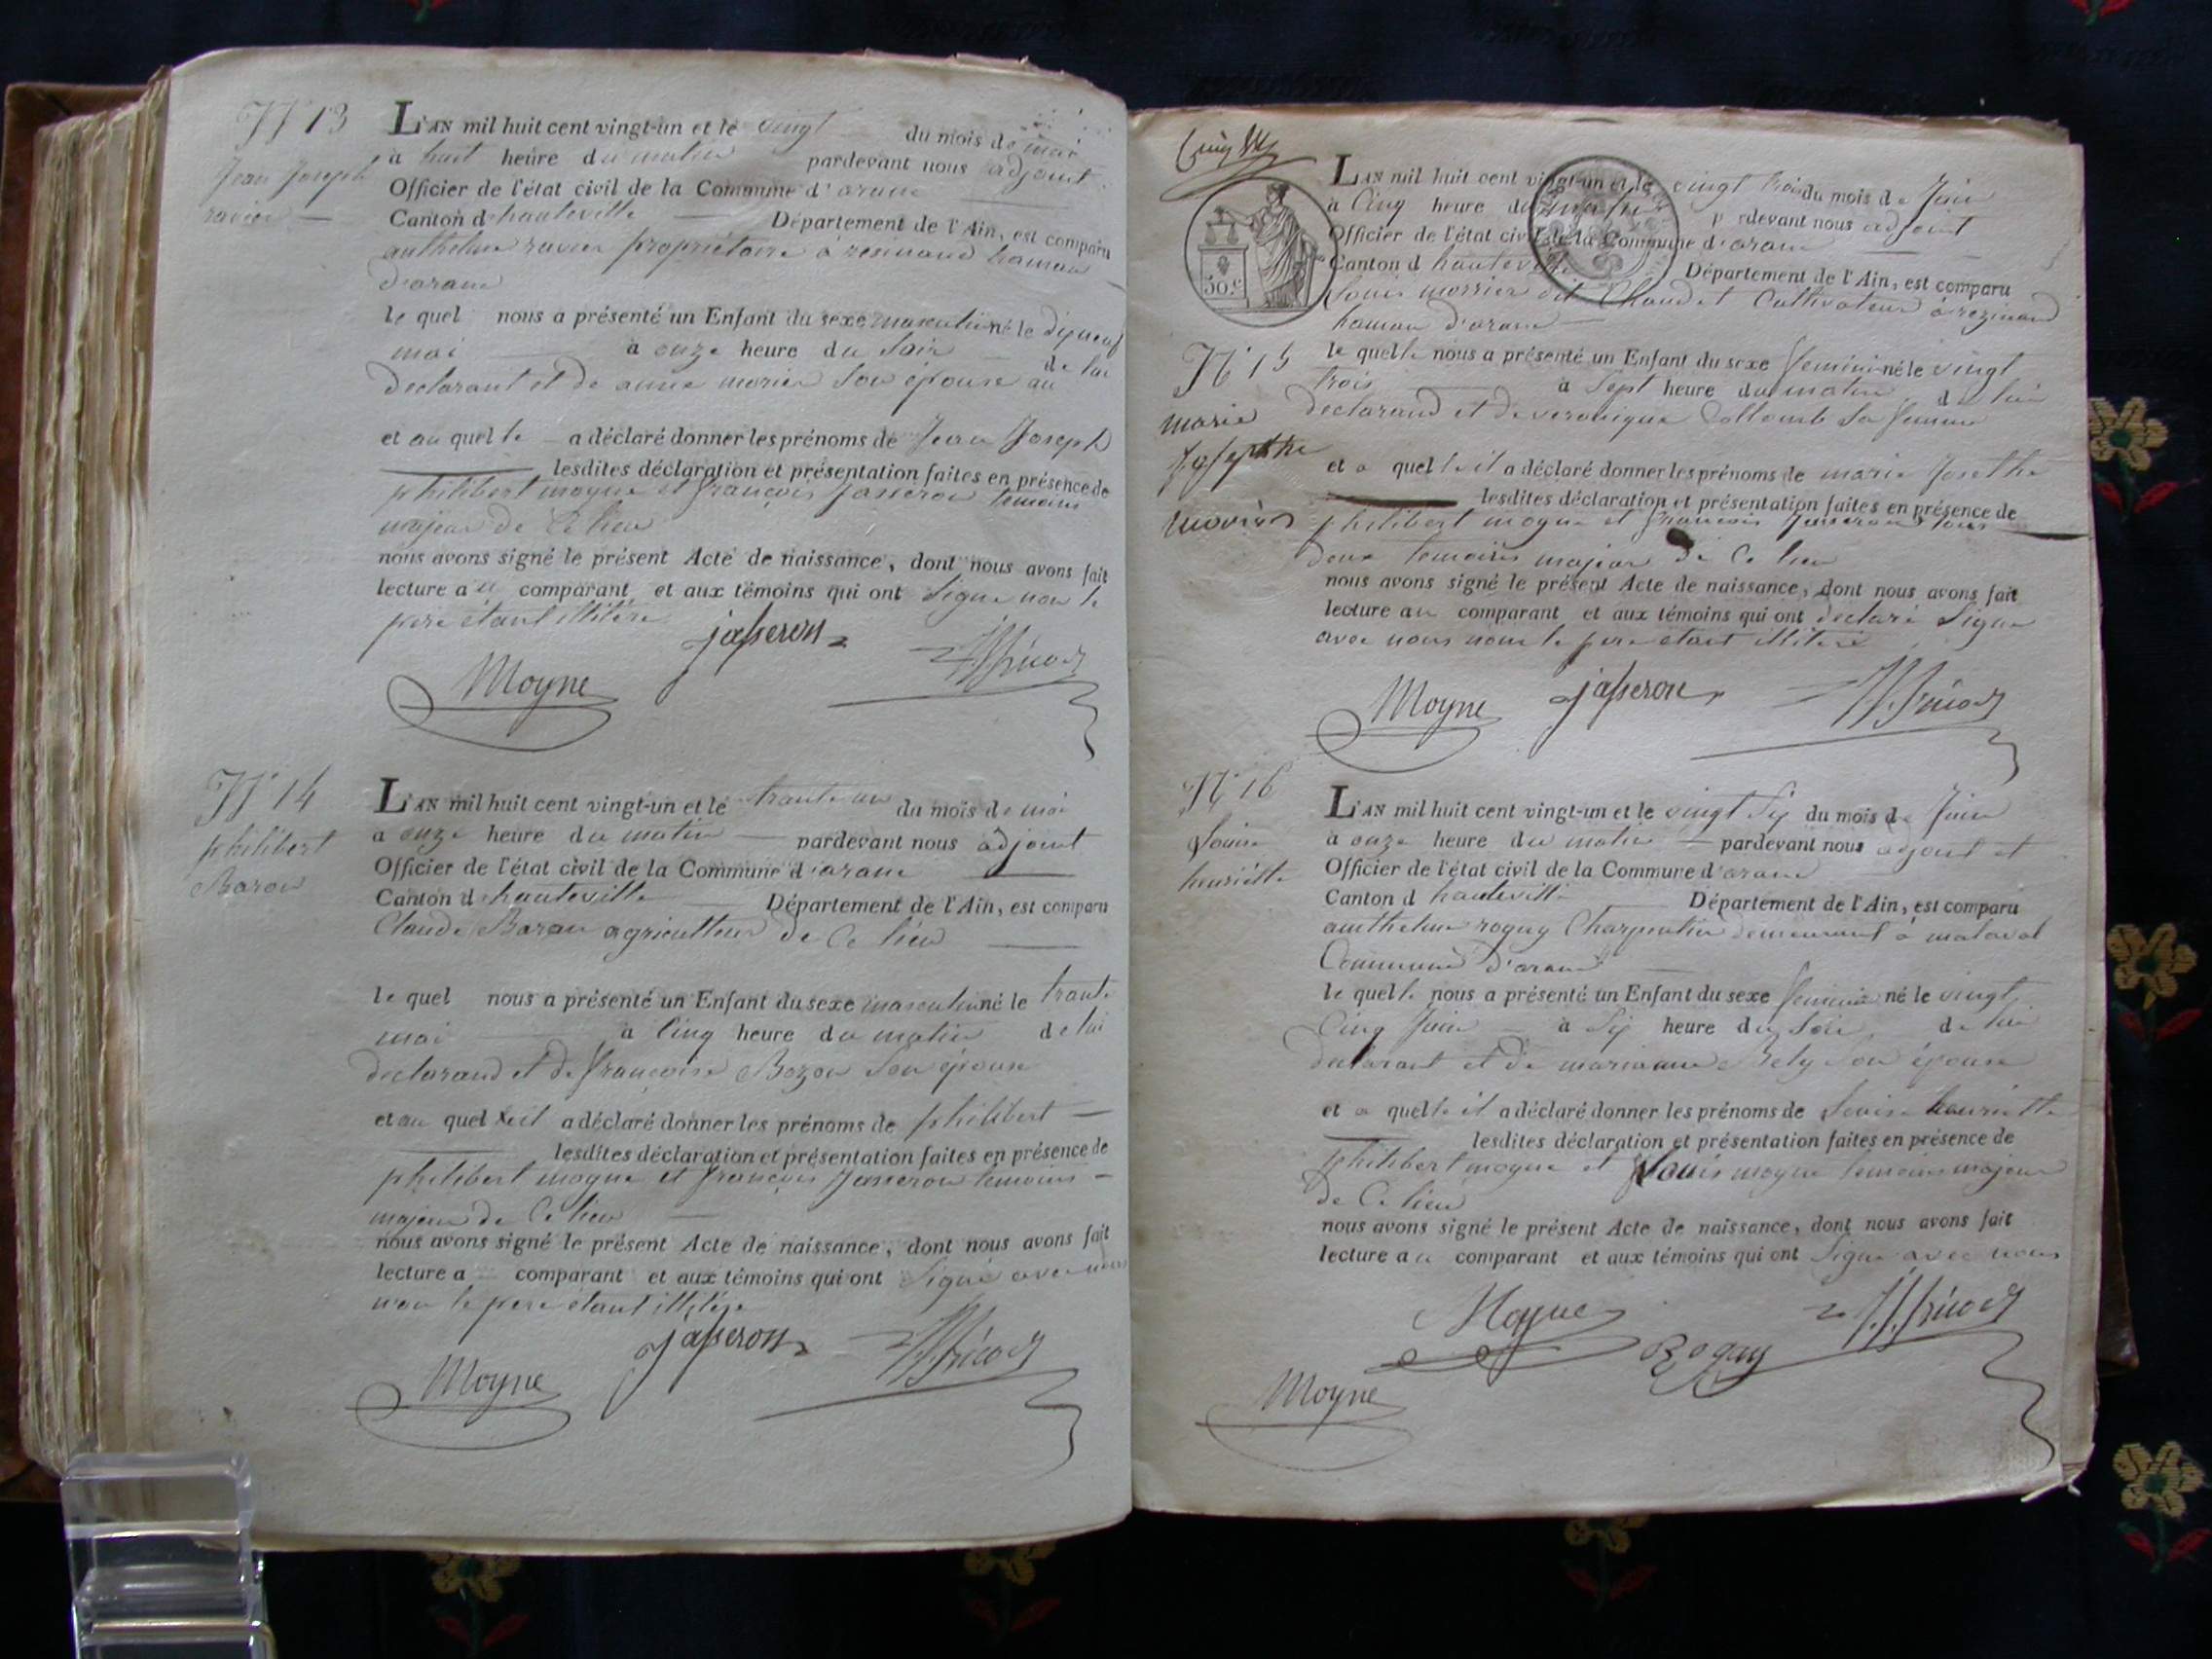 N° 13
Jean Joseph
ravier
L'AN mil huit cent vingt-un et le vingt du mois de mai
à huit heure du matin pardevant nous adjoint
Officier de l'état civil de la Commune d'arane
Canton d'hauteville Département de l'Ain, est comparu
anthelme ravier propriétaire à resinand hamau
d'arane
le quel nous a présenté un Enfant du sexe masculin né le dixneuf
mai à onze heure du soir de lui
declarant et de anne morier son épouse
et au quel le a déclaré donner les prénoms de Jean Joseph
lesdites déclaration et présentation faites en présence de
philibert moyne et françois Jasseron temoins
majeur de Ce lieu
nous avons signé le présent Acte de naissance, dont nous avons fait
lecture au comparant et aux témoins qui ont signé non le
pere étant illitéré
Moyne jasseron
N° 14
philibert
Baron
L'AN mil huit cent vingt-un et le trante un du mois de mai
à onze heure du matin pardevant nous adjoint
Officier de l'état civil de la Commune d'arane
Canton d'hauteville Département de l'Ain, est comparu
Claude Baron agriculteur de Ce lieu
le quel nous a présenté un Enfant du sexe masculin né le trante
mai à Cinq heure du matin de lui
declarand et de françoise Bozon son épouse
et au quel il a déclaré donner les prénoms de philibert
lesdites déclaration et présentation faites en présence de
philibert moyne et françois Jasseron temoins
majeur de Ce lieu
nous avons signé le présent Acte de naissance, dont nous avons fait
lecture a comparant et aux témoins qui ont signé avec nous
non le pere étant illitéré
Moyne jasseron
50.c
L'AN mil huit cent vingt-un et le vingt trois du mois de Juin
à Cinq heure du pardevant nous adjoint
Officier de l'état civil de la Commune d'arane
Canton d hauteville Département de l'Ain, est comparu
Louis morrier dit Chaudet Cultivateur à rezinand
hamau d'arane
N° 15
marie
Josephte
morier
le quelle nous a présenté un Enfant du sexe feminin né le vingt
trois à sept heure du matin de lui
declarand et de veronique Collomb sa femme
et a quelle il a déclaré donner les prénoms de marie Josethe
lesdites déclaration et présentation faites en présence de
philibert moyne et francois Jasseron tous
deux temoins majeur de Ce lieu
nous avons signé le présent Acte de naissance, dont nous avons fait
lecture au comparant et aux témoins qui ont declaré signé
avec nous non le pere étant illitéré
Moyne jasseron
N° 16
Louise
henriette
L'AN mil huit cent vingt-un et le vingt six du mois de Juin
à onze heure du matin pardevant nous adjoint et
Officier de l'état civil de la Commune d'arane
Canton d hauteville Département de l'Ain, est comparu
anthelme roguy Charpentier demeurant à malaval
Commune d'arane
le quelle nous a présenté un Enfant du sexe feminin né le vingt
Cinq Juin à six heure du soir de lui
declarant et de marianne Bely son épouse
et a quelle il a déclaré donner les prénoms de Louise henriette
lesdites déclaration et présentation faites en présence de
philibert moyne et Louis moyne temoins majeur
de Ce lieu
nous avons signé le présent Acte de naissance, dont nous avons fait
lecture au comparant et aux témoins qui ont signé avec nous
Moyne
Roguy
Moyne